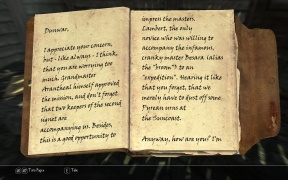 Dunwar,
I appreciate your concern,
but - like always - I think,
that you are worrying too
much. Grandmaster
Arantheal himself approved
the mission, and don't forget
that two keepers of the second
signet are
accompanying us. Besides,
this is a good opportunity to
impress the masters.
Lambert, the only
novice who was willing to
accompany the infamous,
cranky master (alias
the "Brow") to an
"expedition". Hearing it like
that you forget, that we
merely have to dust off some
Pyrean urns at
the Suncoast.
Anyway, how are you? I'm
Turn Page
Take